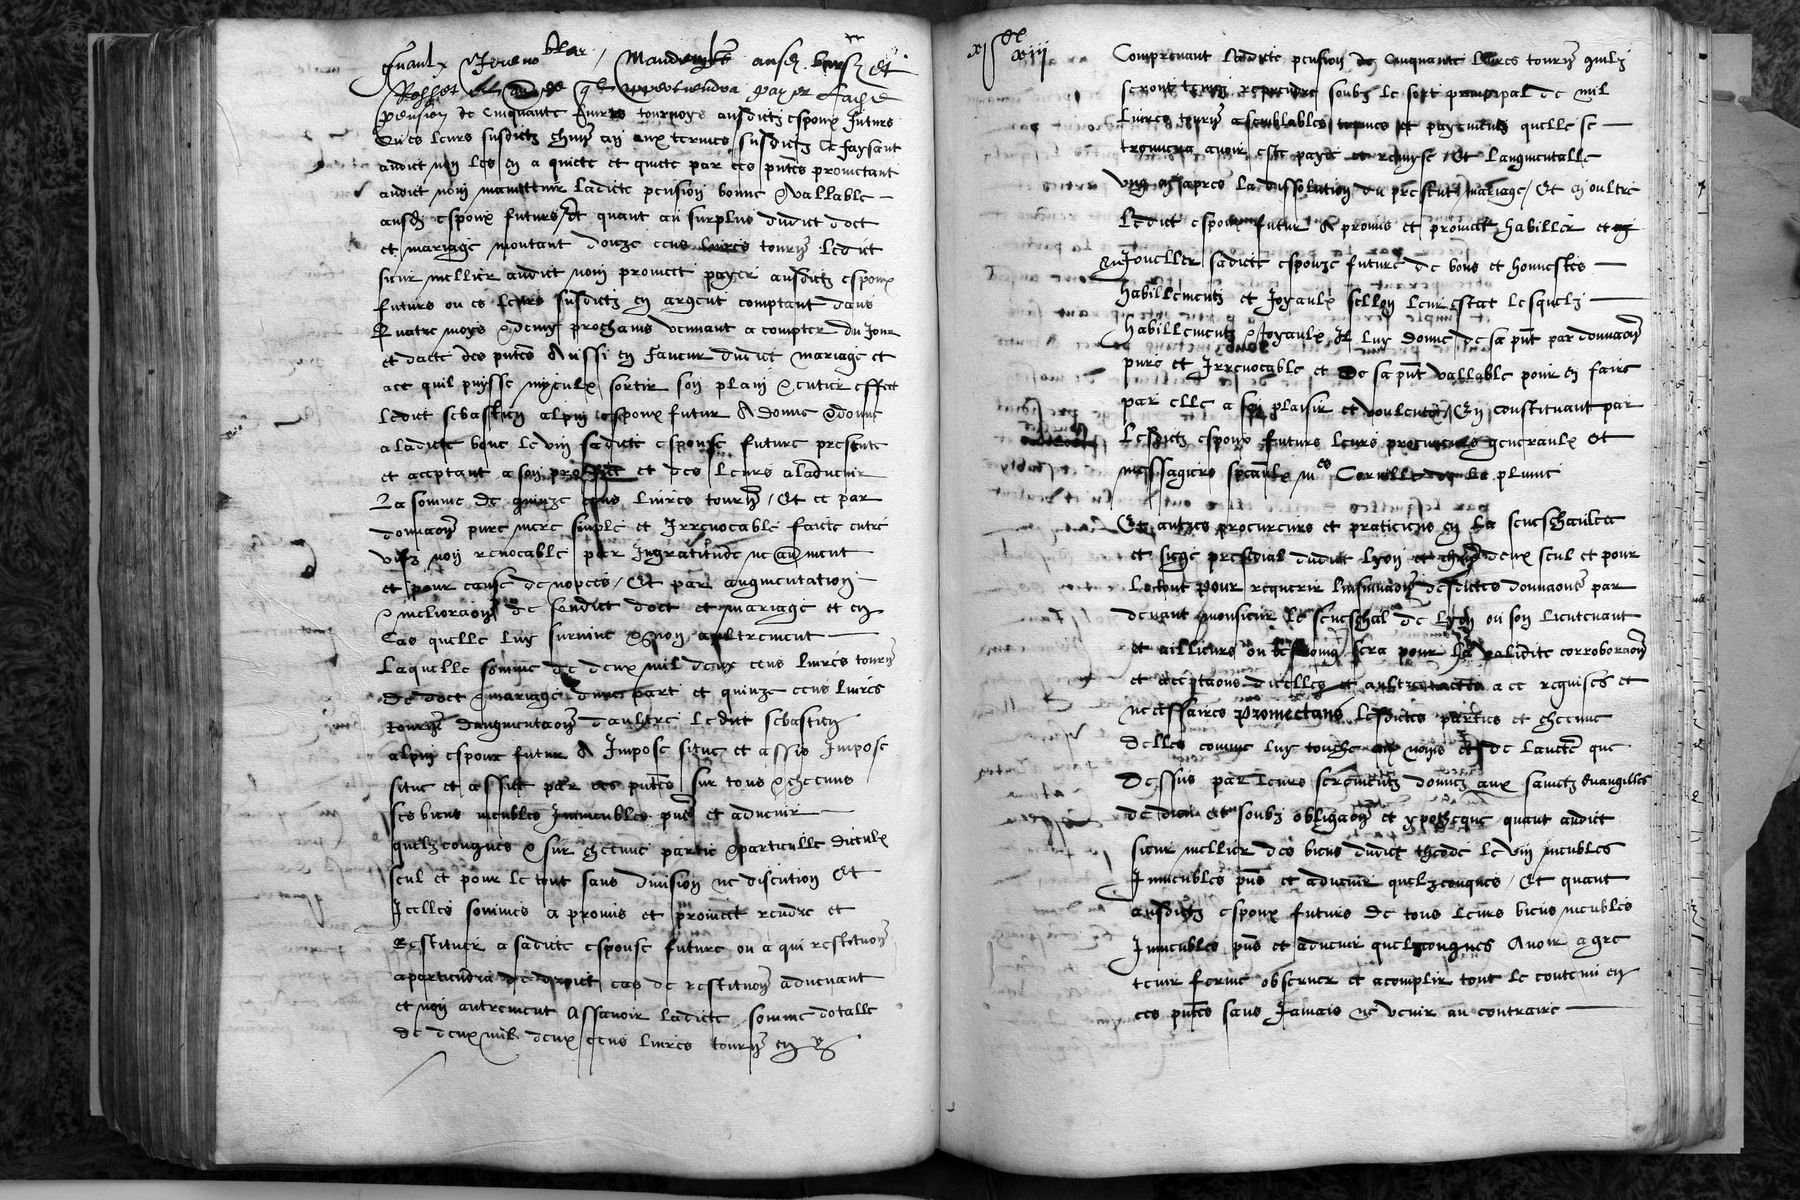 pension de cinquante livres tournoys ausdictz espoux futurs
ou es leurs susdictz chun an aux termes susdictz Ce faysant
audict nom les en a quicte et quicte par ces pntes promectant
audict nom maintenir ladicte pension bonne & vallable
ausd espoux futurs / Et quant au surplus dudict doct
et mariage montant douze cens livres tourn ledict
sieur mellier audict nom promect payer ausdictz espoux
futurs ou es leurs susdictz en argent comptant dans
Quatre moys & demy prochains venant a compter du Jour
et dacte des pntes Aussi en faveur dudict mariage et
ace quil puysse myeulx sortir son plain & entier effect
ledict sebastien alpin espoux futur A donne & donne
a ladicte bone le vin sadicte espouse future presente
et aceptant a son proffict et des leurs aladvenir
La somme de quinze cens livres tourn / Et ce par
donnaon pure mere simple et Irrevocable faicte entre
vifz non revocable par Ingratitude ne aultrement
et pour cause de nopces / Et par augmentation
& melioraon de sondict doct et mariage et en
Cas quelle luy survive & non aultrement
Laquelle somme de deux mil deux cens livres tourn
de doct & mariage dune part et quinze cens livres
tourn daugmentaon daultre ledict sebastien
alpin espoux futur A Impose situe et assis Impose
situe et assiet par ces pntes sur tous & checuns
ses biens meubles Immeubles pns et advenir
quelzconques & sur checune partie & particulle diceulx
seul et pour le tout sans division ne discution Et
Icelles sommes a promis et promect rendre et
Restituer a sadicte espouse future ou a qui restituon
apartiendra de droict cas de restituon advenant
et non autrement Assavoir ladicte somme dotalle
de deux mil deux cens livres tourn en
xiii
Comprenant ladicte pension de cinquante livres tourn quilz
seront tenuz reprendre soubz le sort principal de mil
livres tourn a semblables termes et payementz quelle se
trouvera avoir este payee et remyse / Et laugmentalle
ung an apres la dissolution du present mariage / Et en oultre
ledict espoux futur A promis et promect habiller et
enJoueller sadicte espouze future de bons et honnestes
habillementz et Joyaulx sellon leur estat lesquelz
habillementz & Joyaulx Il luy donne de sa pnt par donnaon
pure et Irrevocable et de sa pnt vallable pour en faire
par elle a son plaisir et voulente / En constituant par
Lesdictz espoux futurs leurs procureurs generaulx et
messagiers speciaulx mes Corneille de la plume
Et autres procureurs et praticiens en la seneschaulcee
et siege presidial dudict lyon et chun deux seul et pour
le tout pour requerir linsinuaon desdictes donnaons par
devant monsieur le seneschal de lyon ou son lieutenant
et ailleurs ou besoing sera pour la validite corroboraon
et aceptaons dicelles a ce requises et
necessaires Promectans lesdictes parties et checune
delles comme luy touche aux noms et de lancte que
Dessus par leurs sermentz donnez aux sainctz evangilles
de dieu et soubz obligaon et ypotheque quant audict
sieur mellier des biens dudict theode le vin meubles
Immeubles pns et advenir quelzconques / Et quant
ausdictz espoux futurs de tous leurs biens meubles
Immeubles pns et advenir quelzconques Avoir agre
tenir ferme observer et acomplir tout le contenu en
ces pntes sans Jamais ne venir au contraire